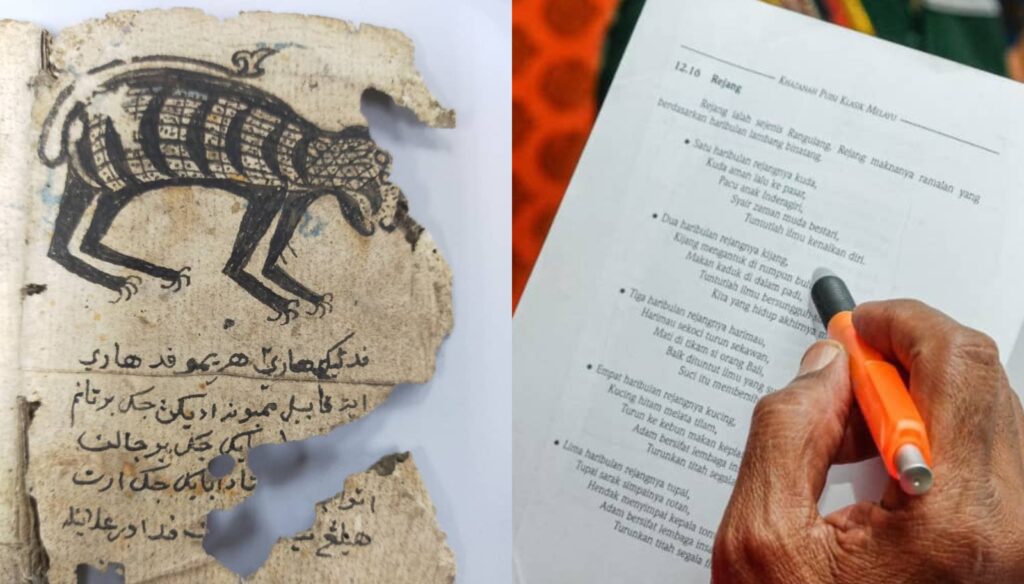 فد تيک هاري هريمو فد هاري
اين قابيل ممبونه اديکڽ جک برتانم
جک برجالن
بايک جک ارت
هيلڠ
KHAZANAH PUISI KLASIK MELAYU
12.16 Rejang
Rejang ialah sejenis Rangulang. Rejang maknanya ramalan yang
berdasarkan haribulan lambang binatang.
• Satu haribulan rejangnya kuda,
Kuda aman lalu ke pasar,
Pacu anak Inderagiri,
Syair zaman muda bestari,
Tuntutlah ilmu kenalkan diri.
• Dua haribulan rejangnya kijang,
Kijang mengantuk di rumpun
Makan kaduk di dalam padi,
Tuntutlah ilmu bersungguh
Kita yang hidup akhirnya
• Tiga haribulan rejangnya harimau,
Harimau sekoci turun sekawan,
Mati di tikam si orang Bali,
Baik dituntut ilmu yang
Suci itu
• Empat haribulan rejangnya kucing,
Kucing hitam melata tilam,
Turun ke kebun makan
Adam bersifat lembaga
Turunkan titah
• Lima haribulan rejangnya tupai,
Tupai sarak simpainya rotan,
Hendak menyimpai kepala
Adam bersifat lembaga
Turunkan titah segala